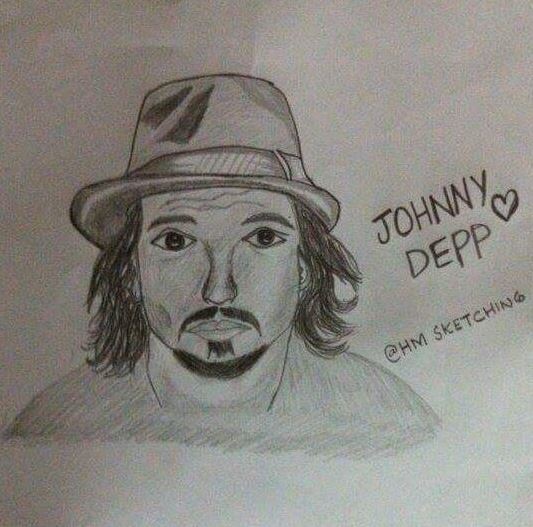 JOHNNY ♡
DEPP
@HM SKETCHING